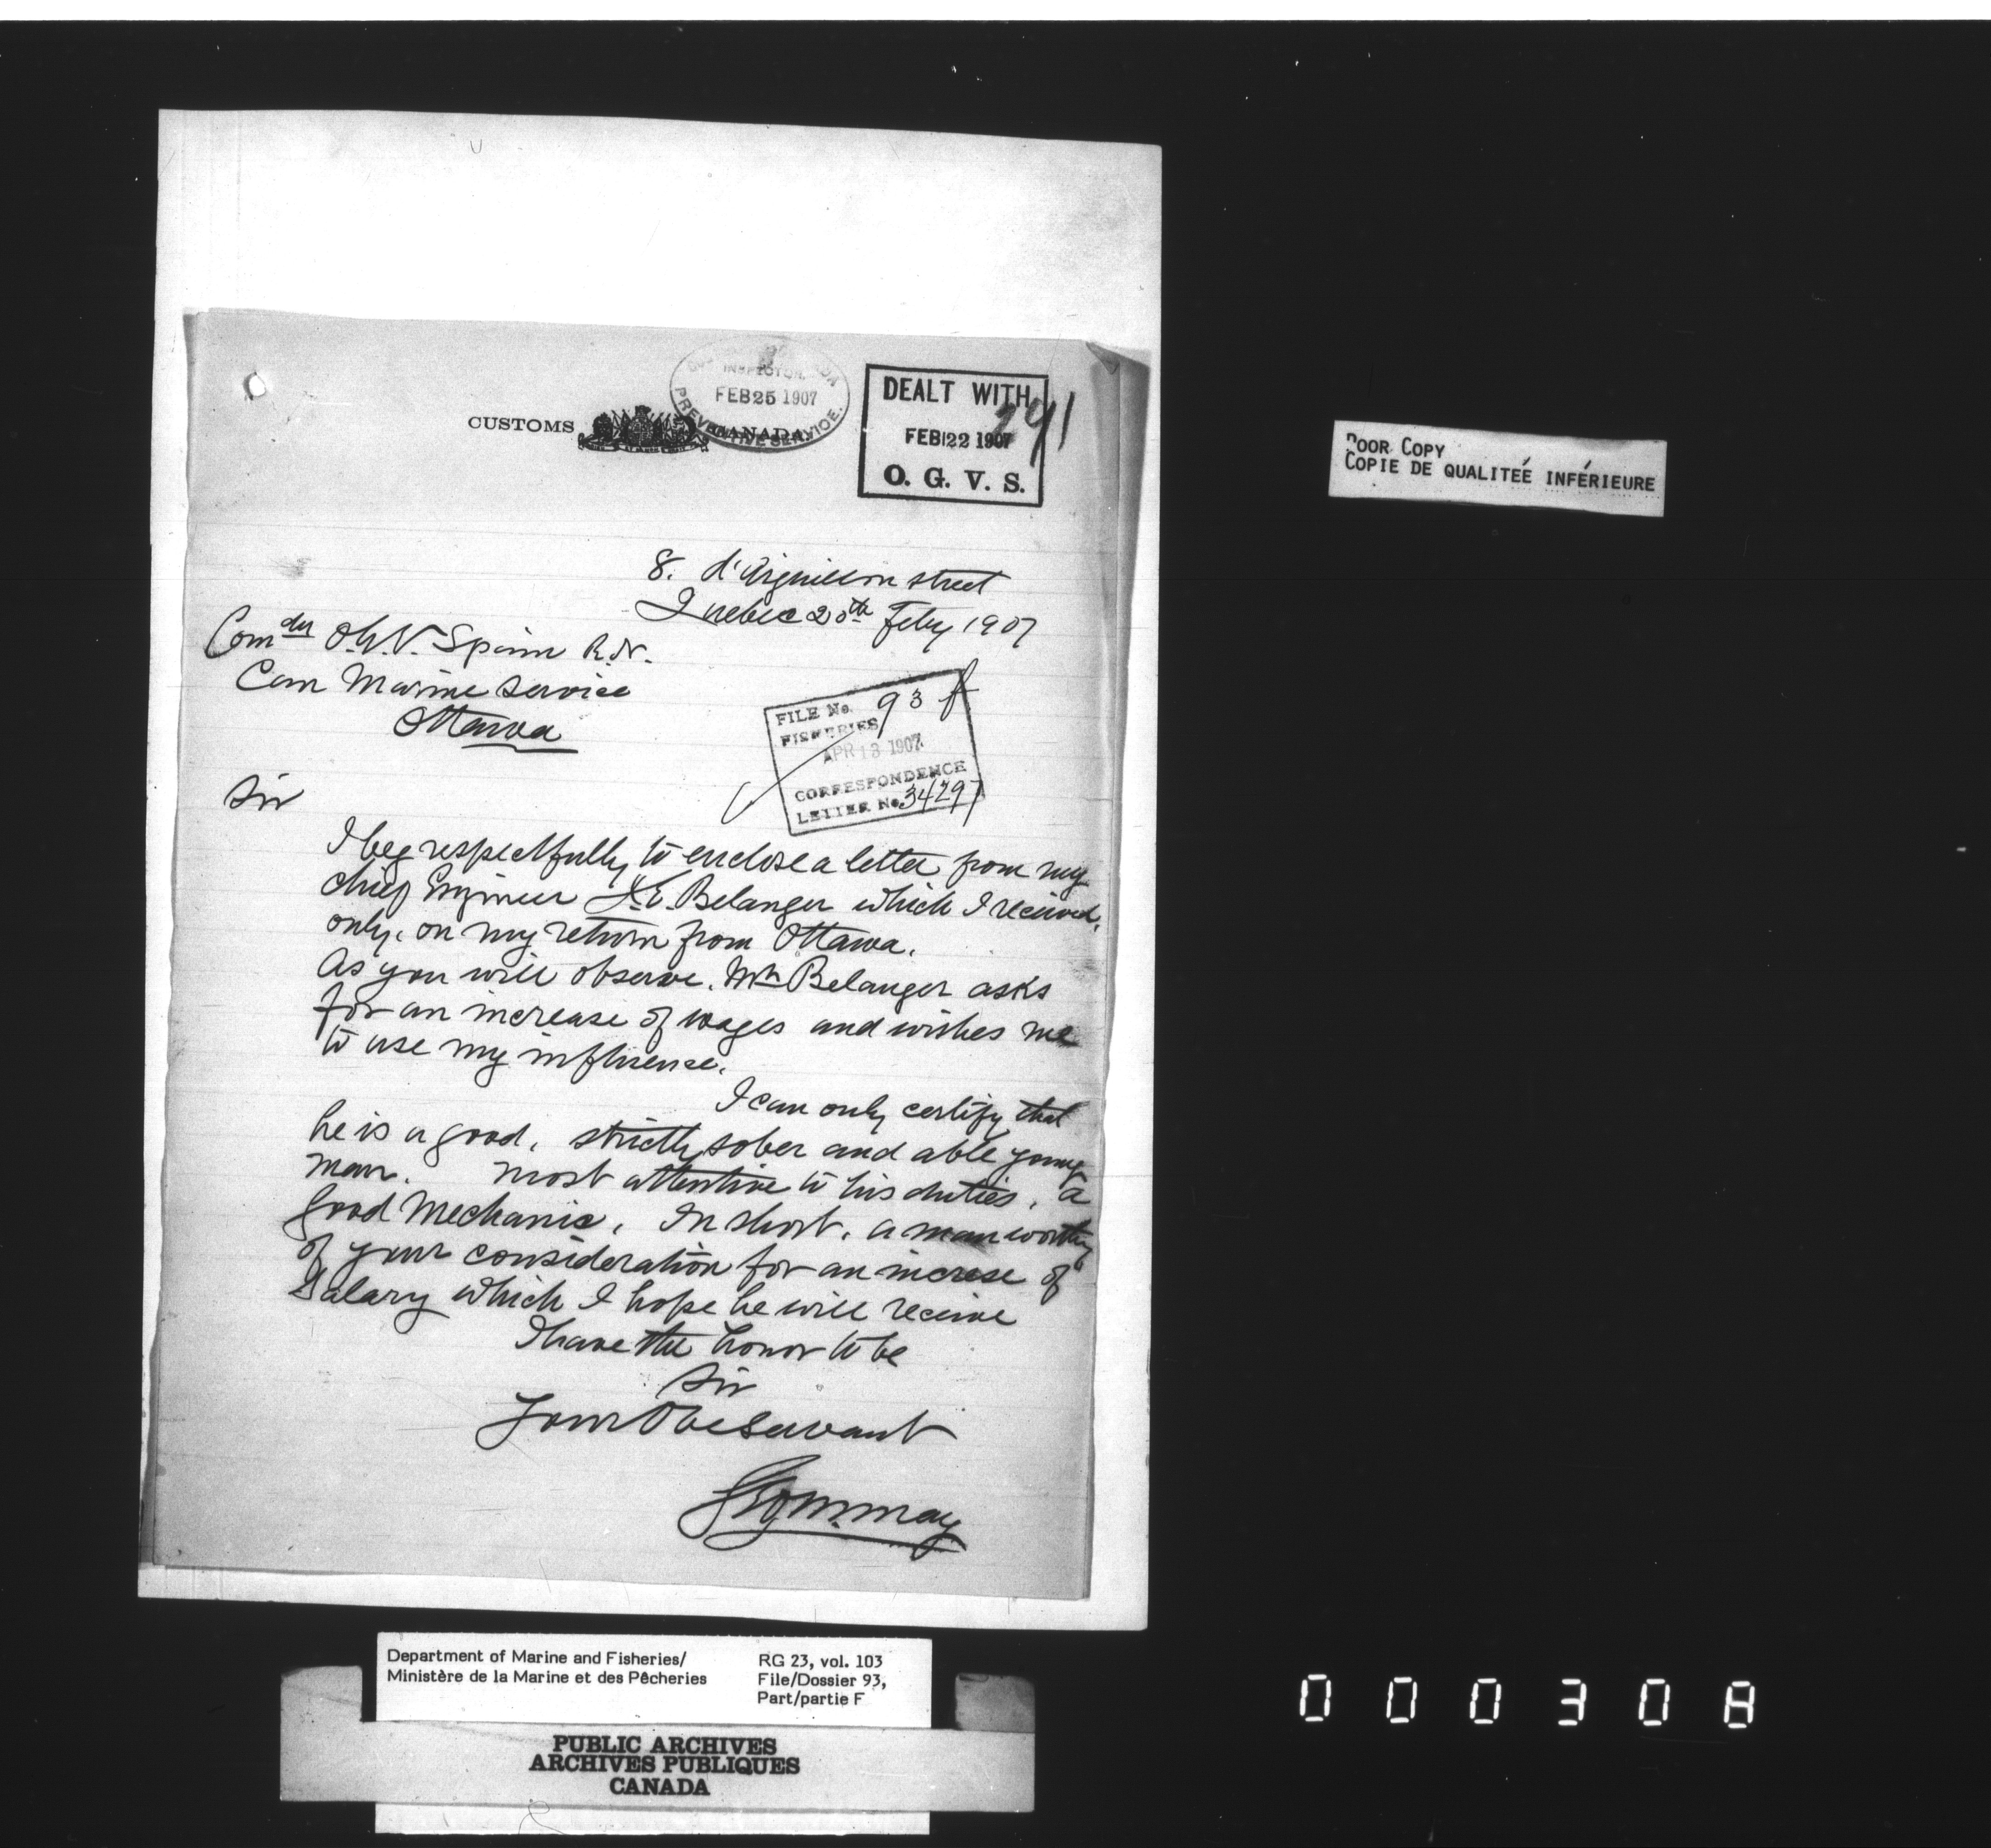 INSPECTOR.
FEB 25 1907
PREVENTIVE SERVICE.
CUSTOMS CANADA
DEALT WITH
291
FEB 22 1907
O. G. V. S.
8. d'Aiguillon street
Quebec 20th Feby 1907
Comder O.G.V. Spain R.N.
Can Marine Service
Ottawa
FILE No. 93 f
FISHERIES
APR 13 1907
CORRESPONDENCE
LETTER No. 34297
Sir
I beg respectfully to enclose a letter from my
chief Engineer Belanger which I received,
only, on my return from Ottawa.
As you will observe. Mr Belanger asks
for an increase of wages and wishes me
to use my influense.
I can only certify that
he is a good, strictly sober and able young
man. most attentive to his duties, a
good Mechanic, In short, a man worthy
of your consideration for an increse of
Salary which I hope he will receive
I have the honor to be
Sir
Your Obe Servant
May
POOR COPY
COPIE DE QUALITEÉ INFÉRIEURE
Department of Marine and Fisheries/ RG 23, vol. 103
Ministère de la Marine et des Pêcheries File/Dossier 93,
Part/partie F
PUBLIC ARCHIVES
ARCHIVES PUBLIQUES
CANADA
000308